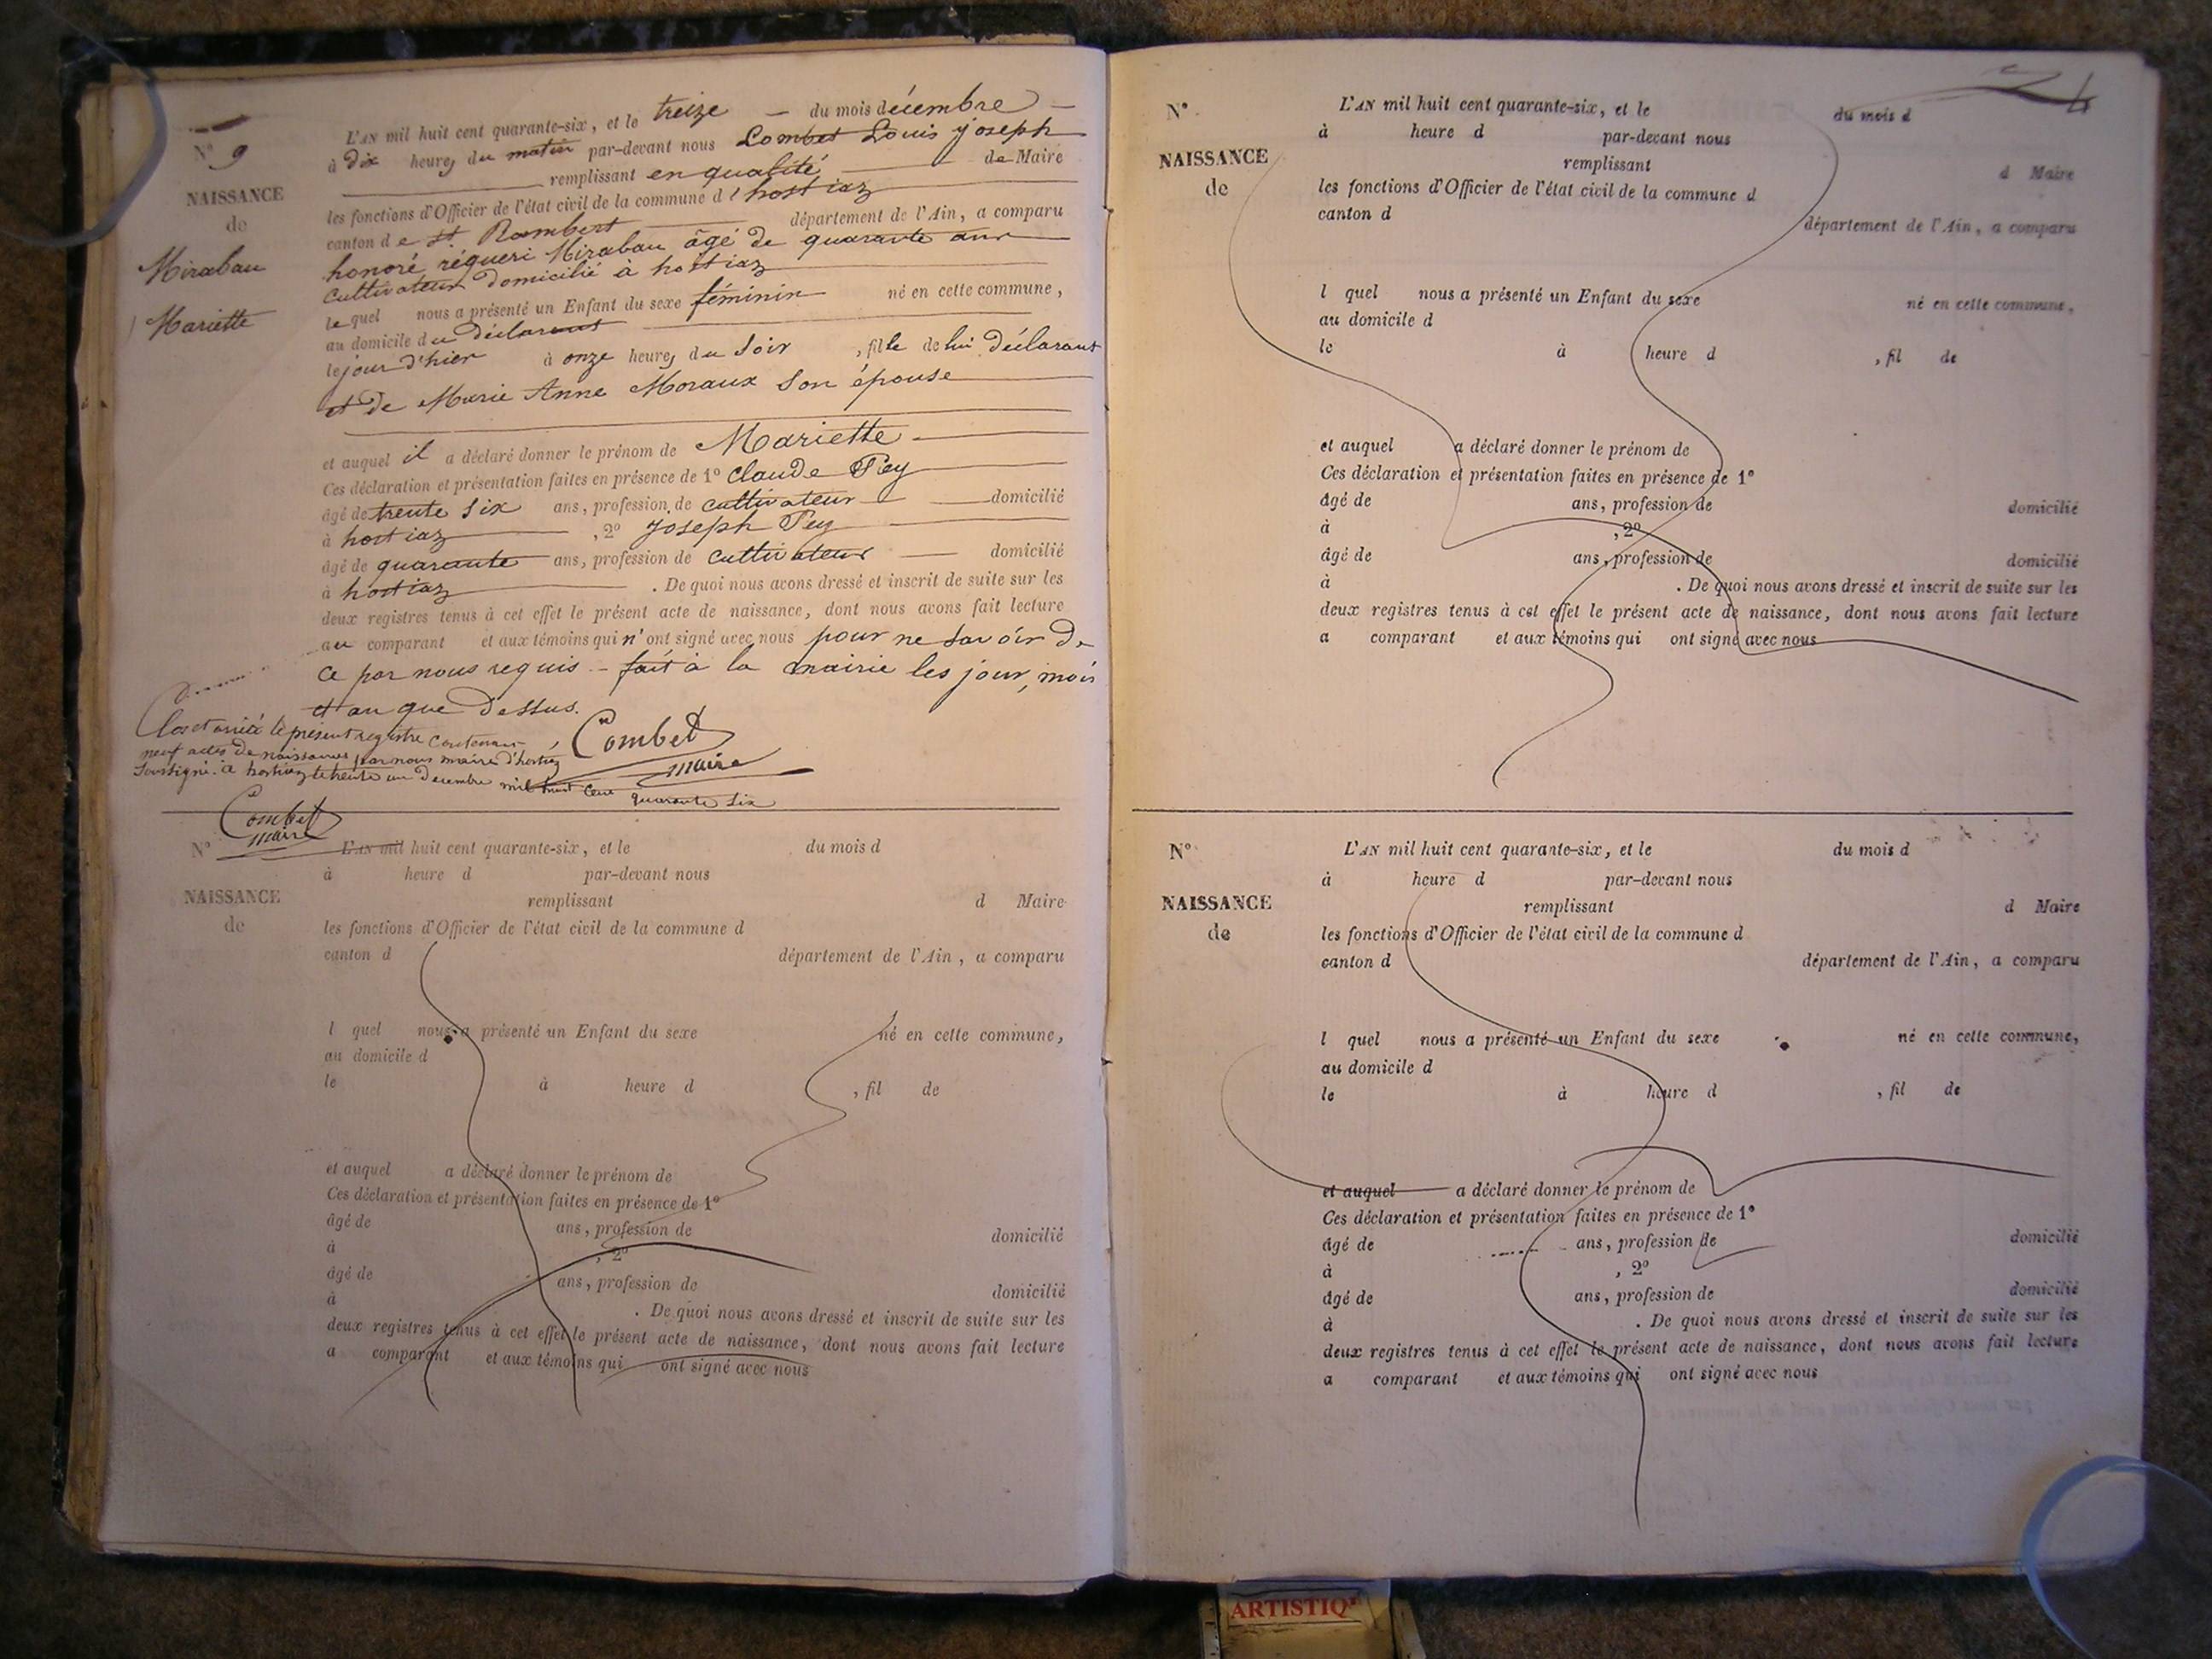 N° 9
NAISSANCE
de
Mirabau
Mariette
L'AN mil huit cent quarante-six, et le treize — du mois décembre —
à dix heures du matin par-devant nous Combet Louis joseph
remplissant en qualité de Maire
les fonctions d'Officier de l'état civil de la commune d'hostiaz
canton de st Rambert département de l'Ain, a comparu
honoré réqueri Mirabau âgé de quarante ans
cultivateur domicilié à hostiaz
lequel nous a présenté un Enfant du sexe féminin né en cette commune,
au domicile du déclarant
le jour d'hier à onze heures du soir, fille de lui déclarant
et de Marie Anne Moraux son épouse
et auquel il a déclaré donner le prénom de Mariette
Ces déclaration et présentation faites en présence de 1° Claude Pey
âgé de trente six ans, profession de cultivateur domicilié
à hostiaz, 2° Joseph Pey
âgé de quarante ans, profession de cultivateur domicilié
à hostiaz. De quoi nous avons dressé et inscrit de suite sur les
deux registres tenus à cet effet le présent acte de naissance, dont nous avons fait lecture
au comparant et aux témoins qui n'ont signé avec nous pour ne savoir de
ce par nous requis - fait à la mairie les jour, mois
et an que dessus.
Combet
maire
Clos et arrêté le présent registre contenant
neuf actes de naissances par nous maire d'hostiaz
soussigné. à hostiaz le trente un Decembre mil huit cent quarante six
Combet
maire
N°
NAISSANCE
de
L'AN mil huit cent quarante-six, et le du mois d
à heure d par-devant nous
remplissant d Maire
les fonctions d'Officier de l'état civil de la commune d
canton d département de l'Ain, a comparu
l quel nous a présenté un Enfant du sexe né en cette commune,
au domicile d
le à heure d , fil de
et auquel a déclaré donner le prénom de
Ces déclaration et présentation faites en présence de 1°
âgé de ans, profession de domicilié
à , 2°
âgé de ans, profession de domicilié
à . De quoi nous avons dressé et inscrit de suite sur les
deux registres tenus à cet effet le présent acte de naissance, dont nous avons fait lecture
a comparant et aux témoins qui ont signé avec nous
N°
NAISSANCE
de
L'AN mil huit cent quarante-six, et le du mois d
à heure d par-devant nous
remplissant d Maire
les fonctions d'Officier de l'état civil de la commune d
canton d département de l'Ain, a comparu
l quel nous a présenté un Enfant du sexe né en cette commune,
au domicile d
le à heure d , fil de
et auquel a déclaré donner le prénom de
Ces déclaration et présentation faites en présence de 1°
âgé de ans, profession de domicilié
à , 2°
âgé de ans, profession de domicilié
à . De quoi nous avons dressé et inscrit de suite sur les
deux registres tenus à cet effet le présent acte de naissance, dont nous avons fait lecture
a comparant et aux témoins qui ont signé avec nous
N°
NAISSANCE
de
L'AN mil huit cent quarante-six, et le du mois d
à heure d par-devant nous
remplissant d Maire
les fonctions d'Officier de l'état civil de la commune d
canton d département de l'Ain, a comparu
l quel nous a présenté un Enfant du sexe né en cette commune,
au domicile d
le à heure d , fil de
et auquel a déclaré donner le prénom de
Ces déclaration et présentation faites en présence de 1°
âgé de ans, profession de domicilié
à , 2°
âgé de ans, profession de domicilié
à . De quoi nous avons dressé et inscrit de suite sur les
deux registres tenus à cet effet le présent acte de naissance, dont nous avons fait lecture
a comparant et aux témoins qui ont signé avec nous
ARTISTIQ